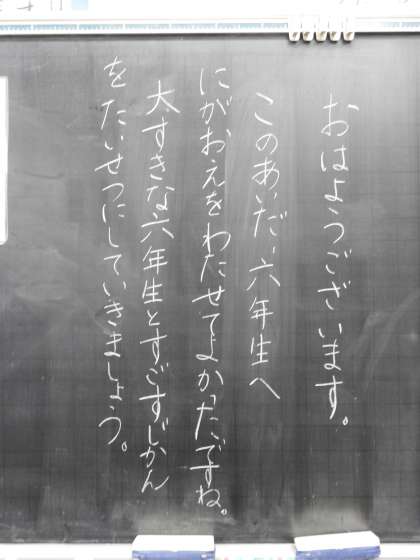 おはようございます。
このあいだ、六年生へ
にがおえをわたせてよかったですね。
大すきな六年生とすごすじかん
をたいせつにしていきましょう。